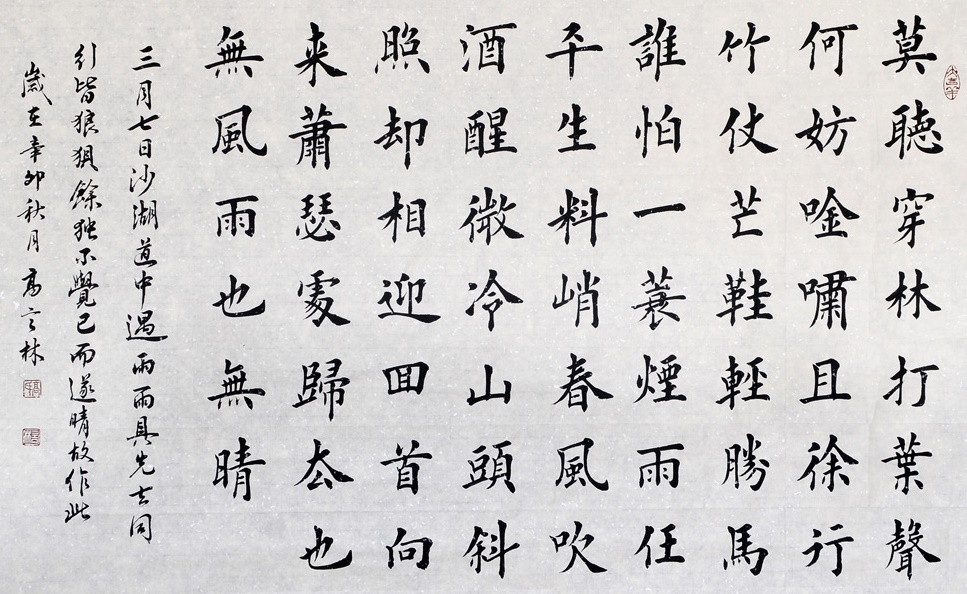 莫聽穿林打葉聲
何妨唫嘯且徐行
竹仗芒鞋輕勝馬
誰怕一蓑煙雨任
平生料峭春風吹
酒醒微冷山頭斜
照却相迎回首向
来蕭瑟處歸去也
無風雨也無晴
三月七日沙湖道中遇雨雨具先去同
引皆狼狽餘獨不覺已而遂晴故作此
歲在辛卯秋月高言林